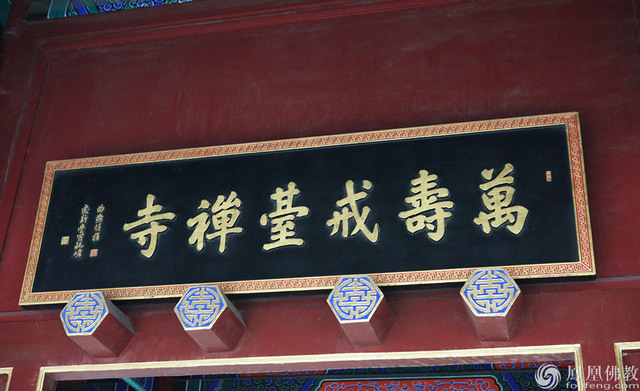 萬壽戒臺禪寺
凤凰佛教
foifeng.com